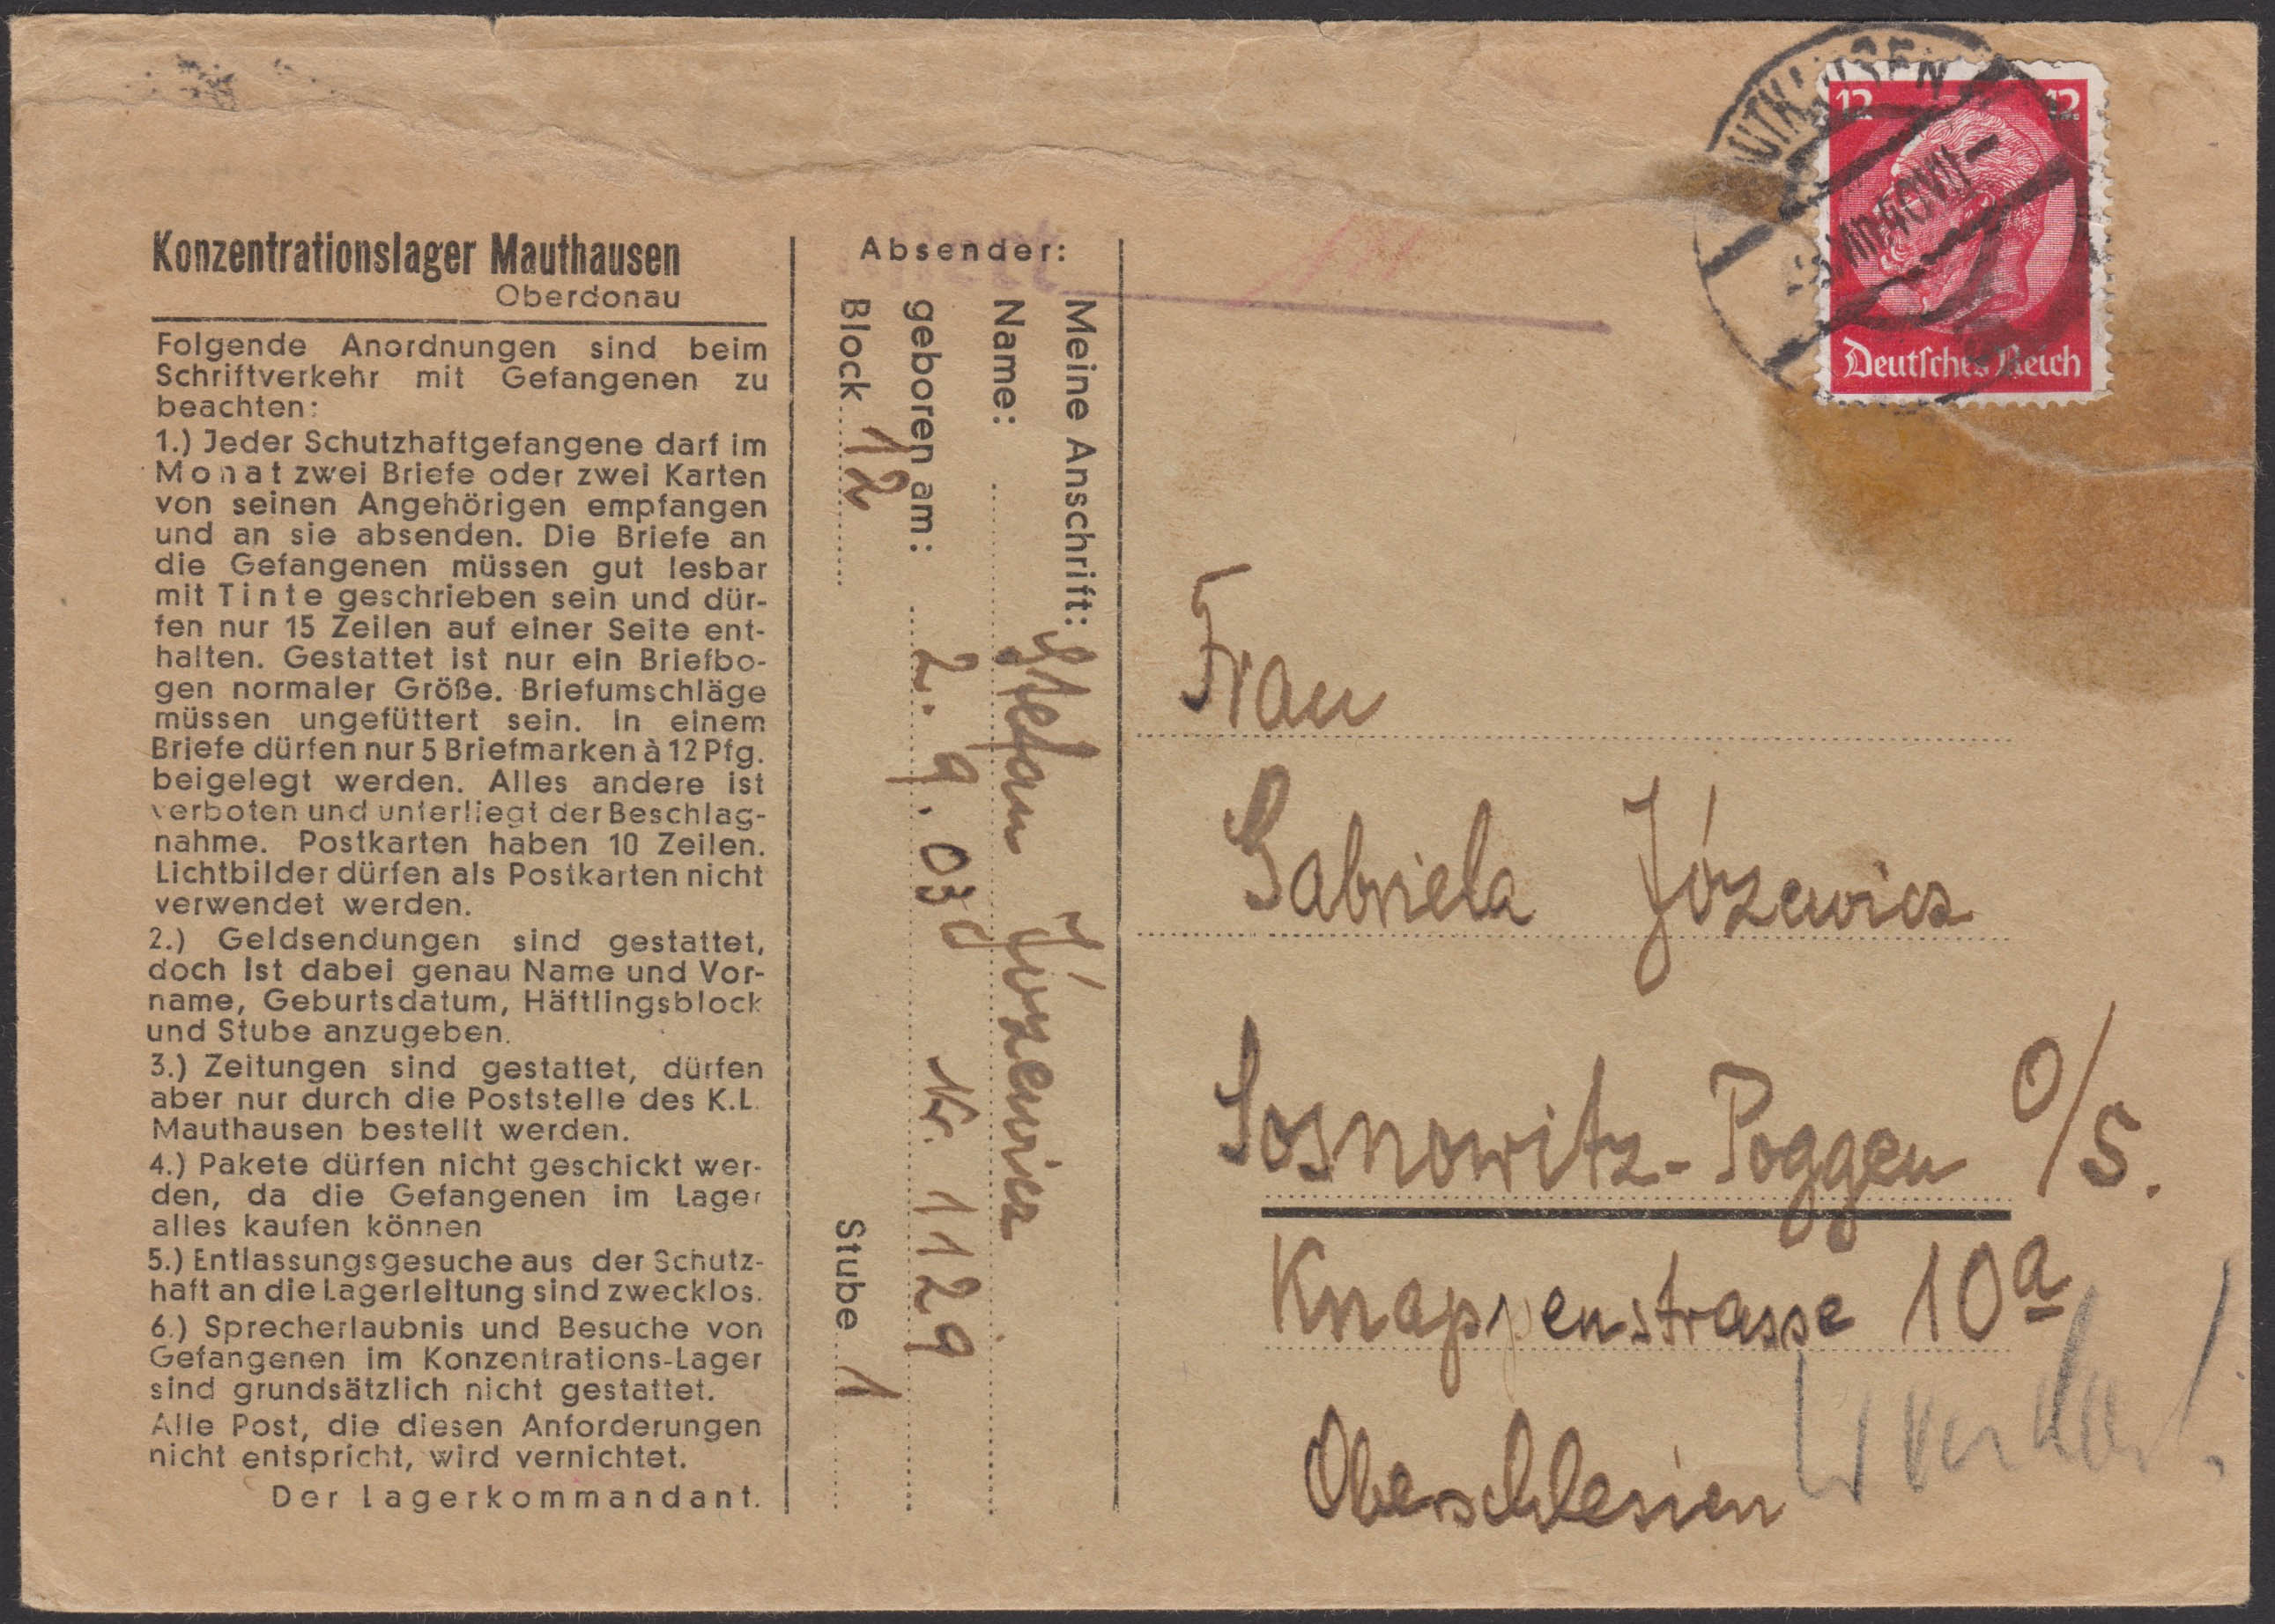 Konzentrationslager Mauthausen
Oberdonau
Folgende Anordnungen sind beim
Schriftverkehr mit Gefangenen zu
beachten:
1.) Jeder Schutzhaftgefangene darf im
Monat zwei Briefe oder zwei Karten
von seinen Angehörigen empfangen
und an sie absenden. Die Briefe an
die Gefangenen müssen gut lesbar
mit Tinte geschrieben sein und dür-
fen nur 15 Zeilen auf einer Seite ent-
halten. Gestattet ist nur ein Briefbo-
gen normaler Größe. Briefumschläge
müssen ungefüttert sein. In einem
Briefe dürfen nur 5 Briefmarken à 12 Pfg.
beigelegt werden. Alles andere ist
verboten und unterliegt der Beschlag-
nahme. Postkarten haben 10 Zeilen.
Lichtbilder dürfen als Postkarten nicht
verwendet werden.
2.) Geldsendungen sind gestattet,
doch ist dabei genau Name und Vor-
name, Geburtsdatum, Häftlingsblock
und Stube anzugeben.
3.) Zeitungen sind gestattet, dürfen
aber nur durch die Poststelle des K.L.
Mauthausen bestellt werden.
4.) Pakete dürfen nicht geschickt wer-
den, da die Gefangenen im Lager
alles kaufen können
5.) Entlassungsgesuche aus der Schutz-
haft an die Lagerleitung sind zwecklos.
6.) Sprecherlaubnis und Besuche von
Gefangenen im Konzentrations-Lager
sind grundsätzlich nicht gestattet.
Alle Post, die diesen Anforderungen
nicht entspricht, wird vernichtet.
Der Lagerkommandant.
Absender:
Meine Anschrift:
Name: Stefan Józewicz
geboren am: 2. 9. Nr. 1129
Block 12 Stube 1
12 12
Deutsches Reich
Frau
Gabriela Józewicz
Sosnowitz-Poggen O/S.
Knappenstrasse 10a
Oberschlesien